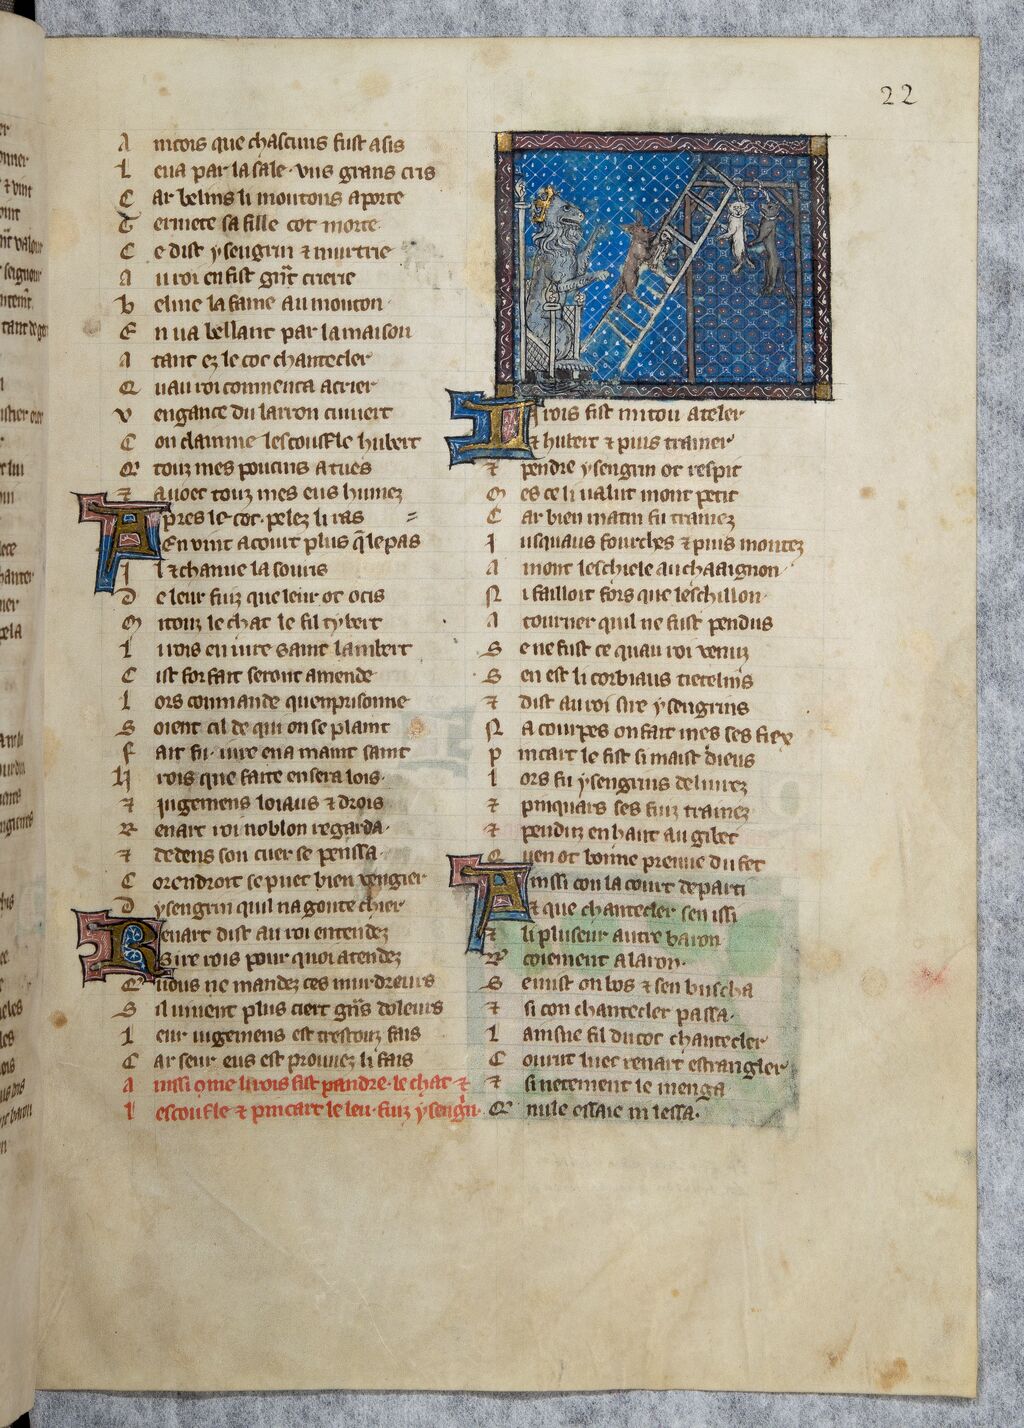 22
A incois que chascuns fust asis
L eua par la sale · vns grans cris
C ar belins li moutons aporte
T ermete sa fille cot morte ·
C e dist ysengrin ⁊ murtrie
A u roi en fist gñt crierie
b eline la fame au mouton ·
E n ua bellant par la maison
A tant ez le coc chantecler
Q uau roi commenca a crier
v engance du larron cuiuert
C on claimme lescoufle hubert
Q̃ touz mes poucins a tues
⁊ auoec touz mes eus humez
Apres le coc · pelez li ras
En vint a court plus q̃ le pas
I l ⁊ chanue la souris
D e leur fuiz que leur ot ocis
M itouz le chat le fil tybert
L i rois en iure saint lambert
C ist forfait seront amende
L ors conmande quenprisonne
S oient cil de qui on se plaint
F ait fu · iure en a maint saint
H rois que faite en sera lois ·
⁊ iugemens loiaus ⁊ drois
R enart roi noblon regarda ·
⁊ dedens son cuer se penssa ·
C orendroit se puet bien vengier
D ysengrin quil na goute chier
Renart dist au roi entendez
Sire rois pour quoi atendez
Q uous ne mandez ces murdreurs
S il uinent plus ciert gñs doleurs
L eur iugemens est trestouz fais
C ar seur eus est prouuez li fais
A inssi cõme li rois fist pandre · le chat ⁊
l escoufle ⁊ pincart le leu · fuiz ysengñ ·
Li rois fist mitou ateler
Et hubert ⁊ puis trainer
⁊ pendre ysengrin ot respit
M es ce li ualut mont petit
C ar bien matin fu trainez
I usquaus fourches ⁊ puis montez
A mont leschiele au chaaignon ·
N i failloit fors que leschillon ·
A tourner quil ne fust pendus
S e ne fust ce quau roi venuz
S en est li corbiaus tiecelins
⁊ dist au roi sire ysengrins
N a courpes on fait mes ses fiex
P incart le fist si maist dieus
L ors fu ysengrins deliurez
⁊ pinquars ses fuiz trainez
⁊ penduz en haut au gibet
Q uen ot bonne preuue du fet
Ainssi con la court departi
Et que chantecler sen issi
⁊ li pluseur autre baron
R̃ coiement a laron ·
S e mist on bos ⁊ sen buscha
⁊ si con chantecler passa ·
L ainsne fil du coc chantecler
C ourut luec renart estrangler
⁊ si netement le menga
Q̃ nule essaie ni lessa ·